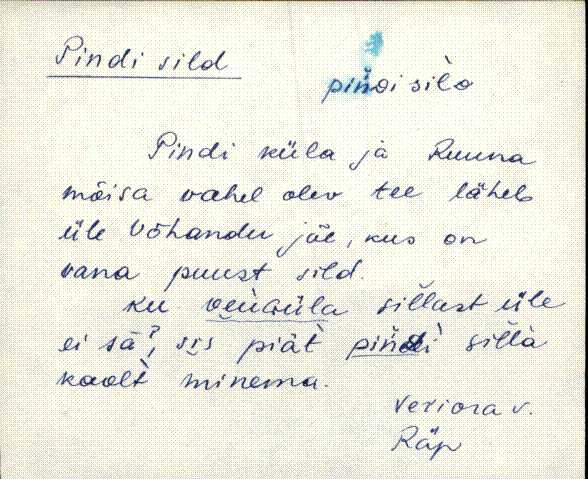 Pindi sild
pińdi silD
Pindi küla ja Ruuna
mõisa vahel olev tee läheb
üle Võhandu jõe, kus on
vana puust sild.
ku sillast üle
ei sā?, sıs piät pińdi silla
kaolt minema.
Veriora v.
Räp